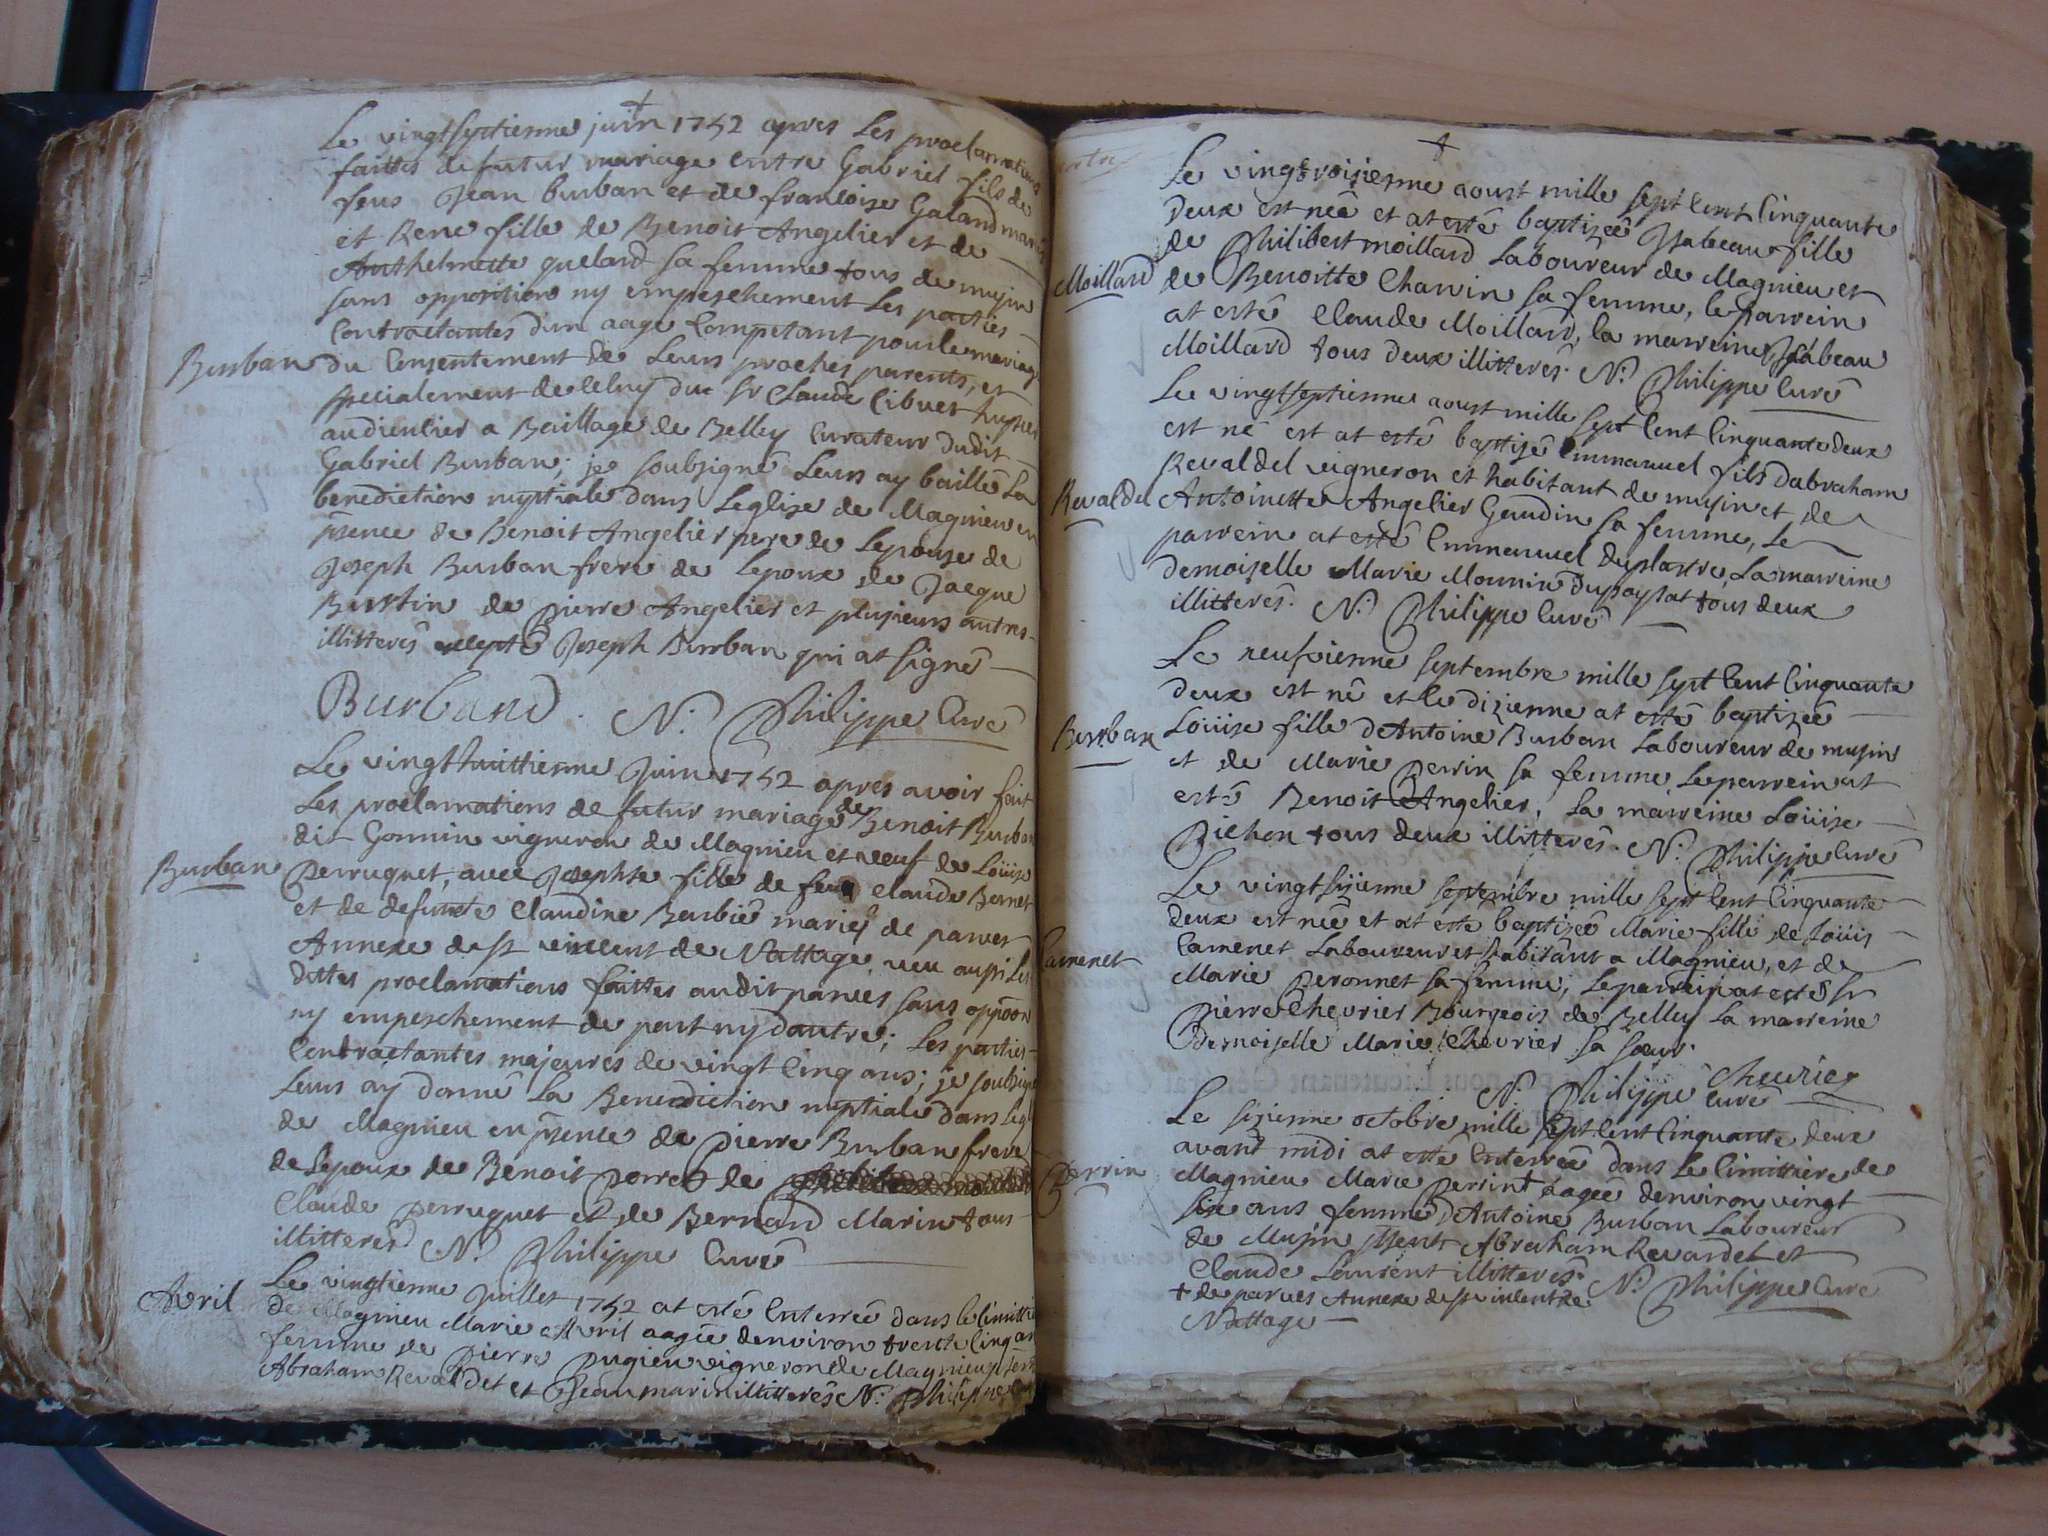 Le vingtseptienne juin 1752 apres les proclamations
faittes de futur mariage entre Gabriel fils de
feus Jean burban et de francoise Galand mariés
et Rene fille de Benoit Angelier et de
Anthelmette quelard sa femme tous de musin
sans oppositions ny empeschement les parties
Contractantes dun aage Competant pour le mariage
Burban
du Consentement de leurs proches parents, et
specialement de celuy du sr Claude Cibuet huysier
audiencier a Baillage de Belley Curateur dudit
Gabriel Burban; je soubsigné leurs ay baillé la
benediction nuptiale dans Leglise de Magnieu en
psence de Benoit Angelier pere de Lepouse de
Joseph Burban frere de Lepoux de Jacque
Burtin de Pierre Angelier et plusieurs autres
illitterés excepté Joseph Burban qui at signé
Burband. N. Philippe Curé
Le vingthuittienne Juin 1752 apres avoir fait
Les proclamations de futur mariage de Benoit Burban
dit Gonnin vigneron de Magnieu et veuf de Loüise
Burban
Perruquet, avec Josephte fille de feu Claude Bernet
et de defuncte Claudine Barbié mariés de parves
Annexe de st vincent de Nattage, veu aussi les
dittes proclamations faittes audit parves sans oppoon
ny empeschement de part ny dautre; Les parties
Contractantes majeures de vingt cinq ans; je soubsigné
Leurs ay donné la Benediction nuptiale dans leg
de Magnieu en psence de Pierre Burban frere
de Lepoux de Benoit Porret de
Claude Perruquet et de Bernard Marin tous
illitterés N. Philippe Curé
Avril
Le vingtienne Juillet 1752 at esté Enterrée dans le Cimittie
de Magnieu Marie Avril aagée denviron trente cinq an
femme de Pierre Pugieu vigneron de Magnieu psent
Abraham Revaldet et Jean marin illitterés N. Philippe Curé
Le vingtroisienne aoust mille sept Cent Cinquante
Deux est née et at esté baptizée Isabeau fille
de Philibert Moillard Laboureur de Magnieu et
Moillard
de Benoitte Charvin sa femme, le parrein
at esté Claude Moillard, la marreine Isabeau
Moillard tous deux illitterés. N. Philippe Curé
Le vingtseptienne aoust mille sept Cent Cinquante deux
est né est at esté baptizé Emmanuel fils dabraham
Revaldel vigneron et habitant de musin et de
Revaldel
Antoinette Angelier Gaudin sa femme, Le
parrein at esté Emmanuel duplastre, La marreine
Demoiselle Marie Monnin Dupaysat tous deux
illitterés. N. Philippe Curé
Le neufvienne septembre mille sept Cent Cinquante
deux est né et le dizienne at esté baptizée
Burban
Loüise fille dAntoine Burban Laboureur de musin
et de Marie Perrin sa femme, Le parrein at
esté Benoit Angelier, la marreine Loüise
Pichon tous deux illitterés. N. Philippe Curé
Le vingtsizienne septembre mille sept Cent Cinquante
deux est née et at esté baptizée Marie fille de Loüis
Camenet
Camenet Laboureur et habitant a Magnieu, et de
Marie Peronnet sa femme; Le parrein at esté sr
Pierre Chevrier Bourgeois de Belley la marreine
Demoiselle Marie Chevrier sa soeur.
Chevrier
N. Philippe Curé
Le sizienne octobre mille sept Cent Cinquante deux
avant midi at esté Enterrée dans le Cimittiere de
Perrin
Magnieu Marie Perrin + aagée denviron vingt
six ans femme dAntoine Burban Laboureur
de Musin psents Abraham Revardel et
Claude Laurent illitterés. N. Philippe Curé
+ de parves Annexe de st vincent de
Nattage